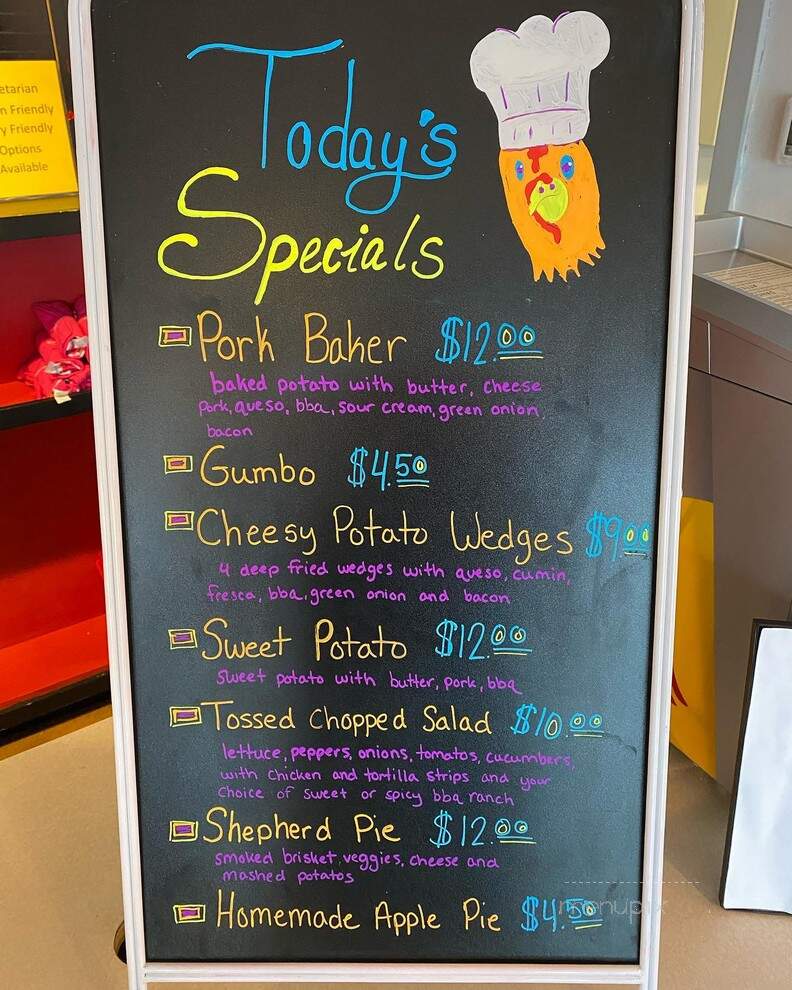 etarian
n Friendly
y Friendly
Options
Available
Today's
Specials
Pork Baker $12.00
baked potato with butter, cheese
pork, queso, bbq, sour cream, green onion,
bacon
Gumbo $4.50
Cheesy Potato Wedges $9.00
4 deep fried wedges with queso, cumin,
fresca, bbq, green onion and bacon
Sweet Potato $12.00
Sweet potato with butter, pork, bbq
Tossed Chopped Salad $10.00
lettuce, peppers, onions, tomatos, cucumbers,
with chicken and tortilla strips and your
choice of sweet or spicy bbq ranch
Shepherd Pie $12.00
smoked brisket, veggies, cheese and
mashed potatos
Homemade Apple Pie $4.50
menupix